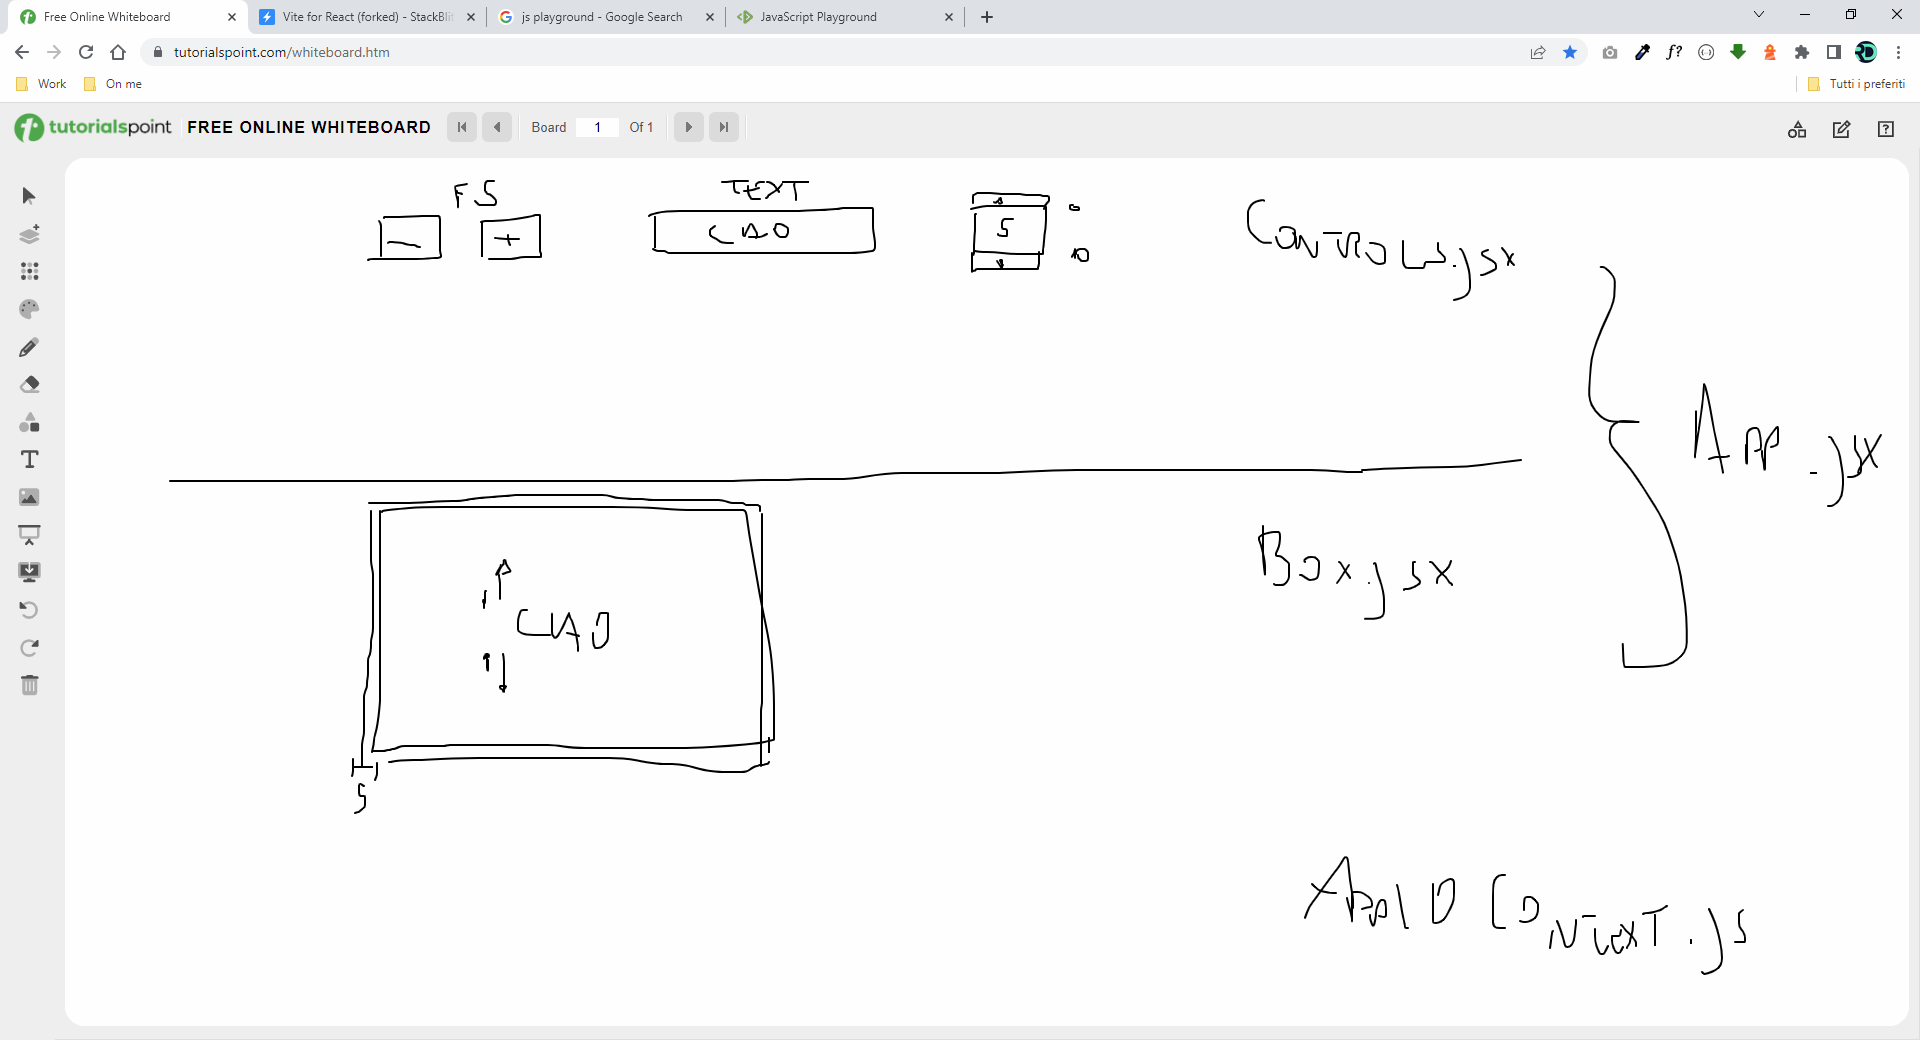 Free Online Whiteboard
Vite for React (forked) - StackBlit
js playground - Google Search
JavaScript Playground
tutorialspoint.com/whiteboard.htm
f?
Work
On me
Tutti i preferiti
tutorialspoint
FREE ONLINE WHITEBOARD
Board 1 Of 1
FS
TEXT
- +
CIAO
5
0
10
CONTROLS.jsx
APP.jsx
CIAO
BOX.jsx
5